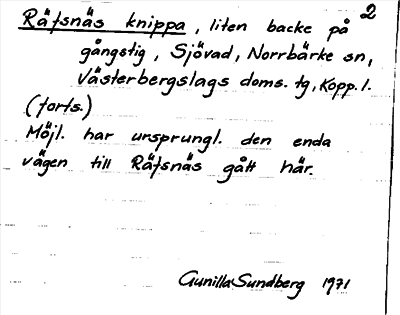 Räfsnäs knippa, liten backe på 2
gångstig, Sjövad, Norrbärke sn,
Västerbergslags doms. tg, Kopp. l.
(forts.)
Möjl. har ursprungl. den enda
vägen till Räfsnäs gått här.
Gunilla Sundberg 1971